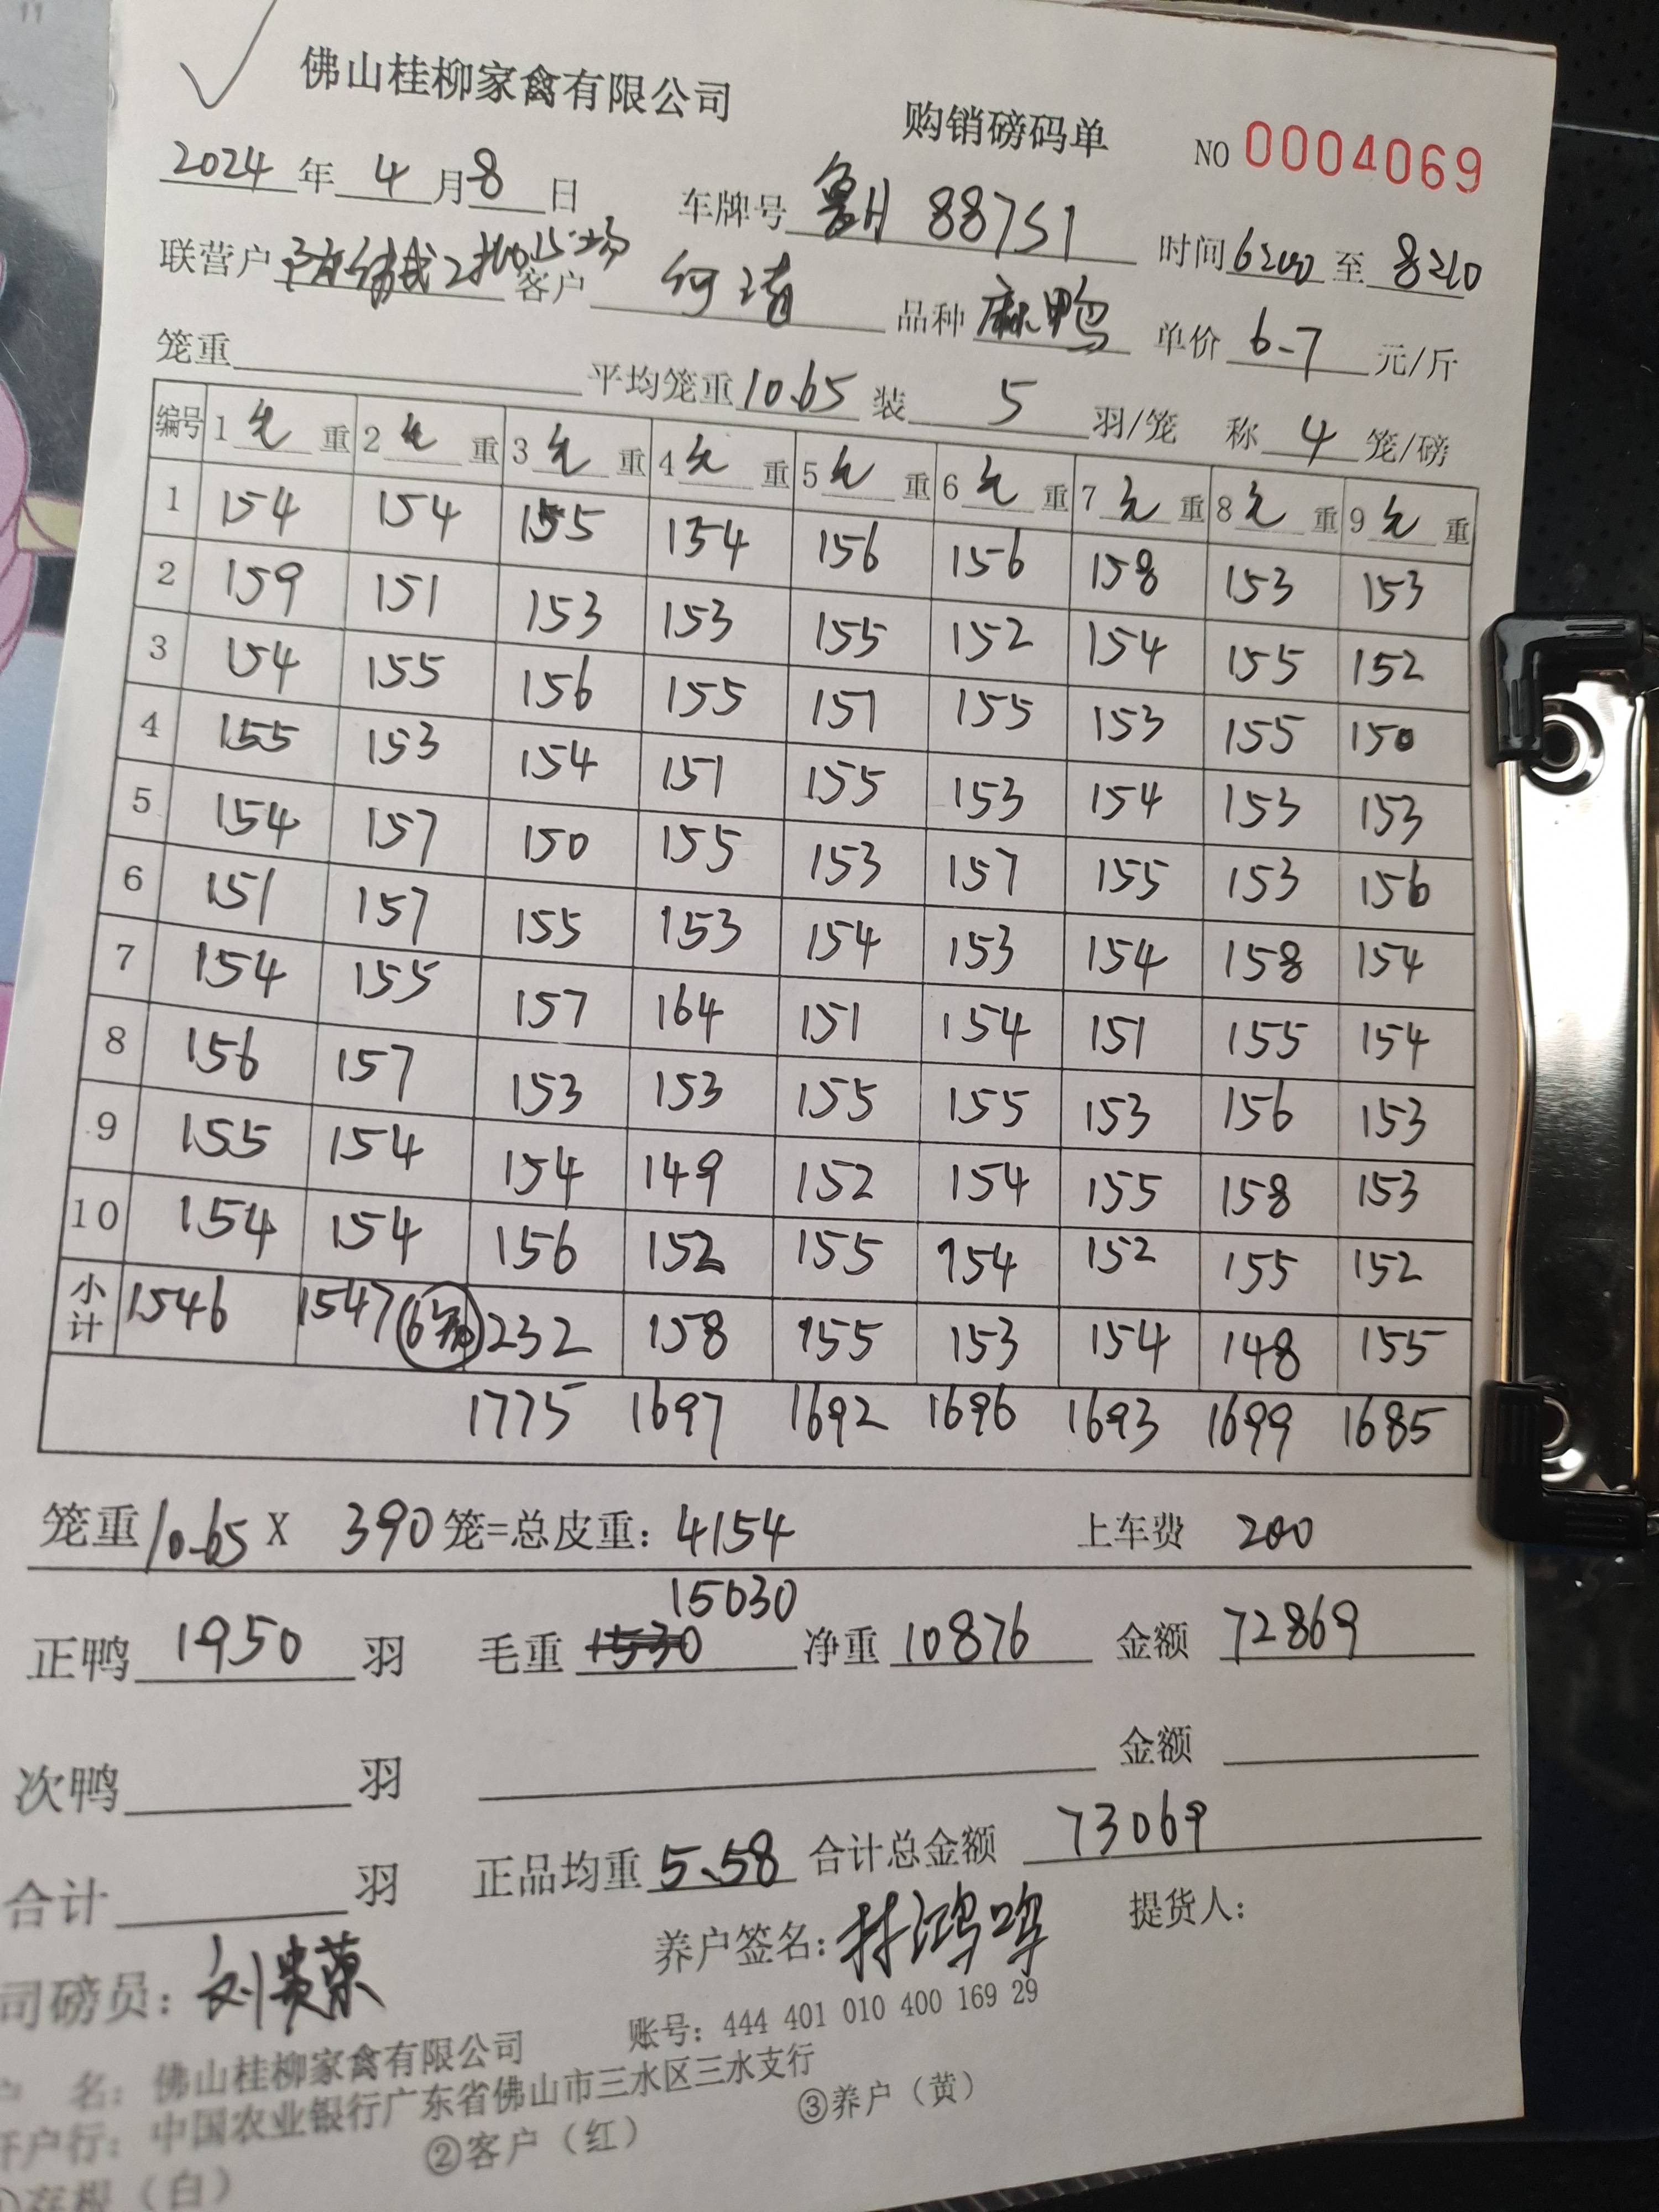 11
佛山桂柳家禽有限公司 购销磅码单 NO 0004069
2024 年 4 月 8 日 车牌号 鲁H 88751 时间 6:00 至 8:10
联营户 客户 何 品种 麻鸭 单价 6.7 元/斤
笼重 平均笼重 10.65 装 5 羽/笼 称 4 笼/磅
编号 1 毛 重 2 毛 重 3 毛 重 4 毛 重 5 毛 重 6 毛 重 7 毛 重 8 毛 重 9 毛 重
1 154 154 155 154 156 156 158 153 153
2 159 151 153 153 155 152 154 155 152
3 154 155 156 155 151 155 153 155 150
4 155 153 154 151 155 153 154 153 153
5 154 157 150 155 153 157 155 153 156
6 151 157 155 153 154 153 154 158 154
7 154 155 157 164 151 154 151 155 154
8 156 157 153 153 155 155 153 156 153
9 155 154 154 149 152 154 155 158 153
10 154 154 156 152 155 154 152 155 152
小计 1546 1547 232 158 155 153 154 148 155
1775 1697 1692 1696 1693 1699 1685
笼重 10.65 X 390 笼=总皮重: 4154 上车费 200
正鸭 1950 羽 毛重 15030 净重 10876 金额 72869
次鸭 羽 金额
合计 羽 正品均重 5.58 合计总金额 73069
司磅员: 刘贵荣 养户签名: 林鸿鸣 提货人:
户 名: 佛山桂柳家禽有限公司 账号: 444 401 010 400 169 29
开户行: 中国农业银行广东省佛山市三水区三水支行
①存根（白） ②客户（红） ③养户（黄）